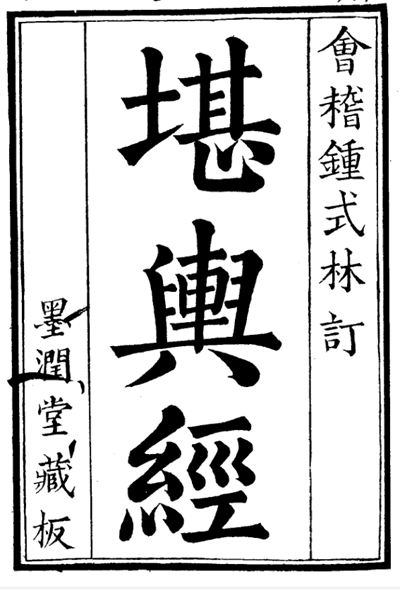 會稽鍾式林訂
堪輿經
墨潤堂藏板